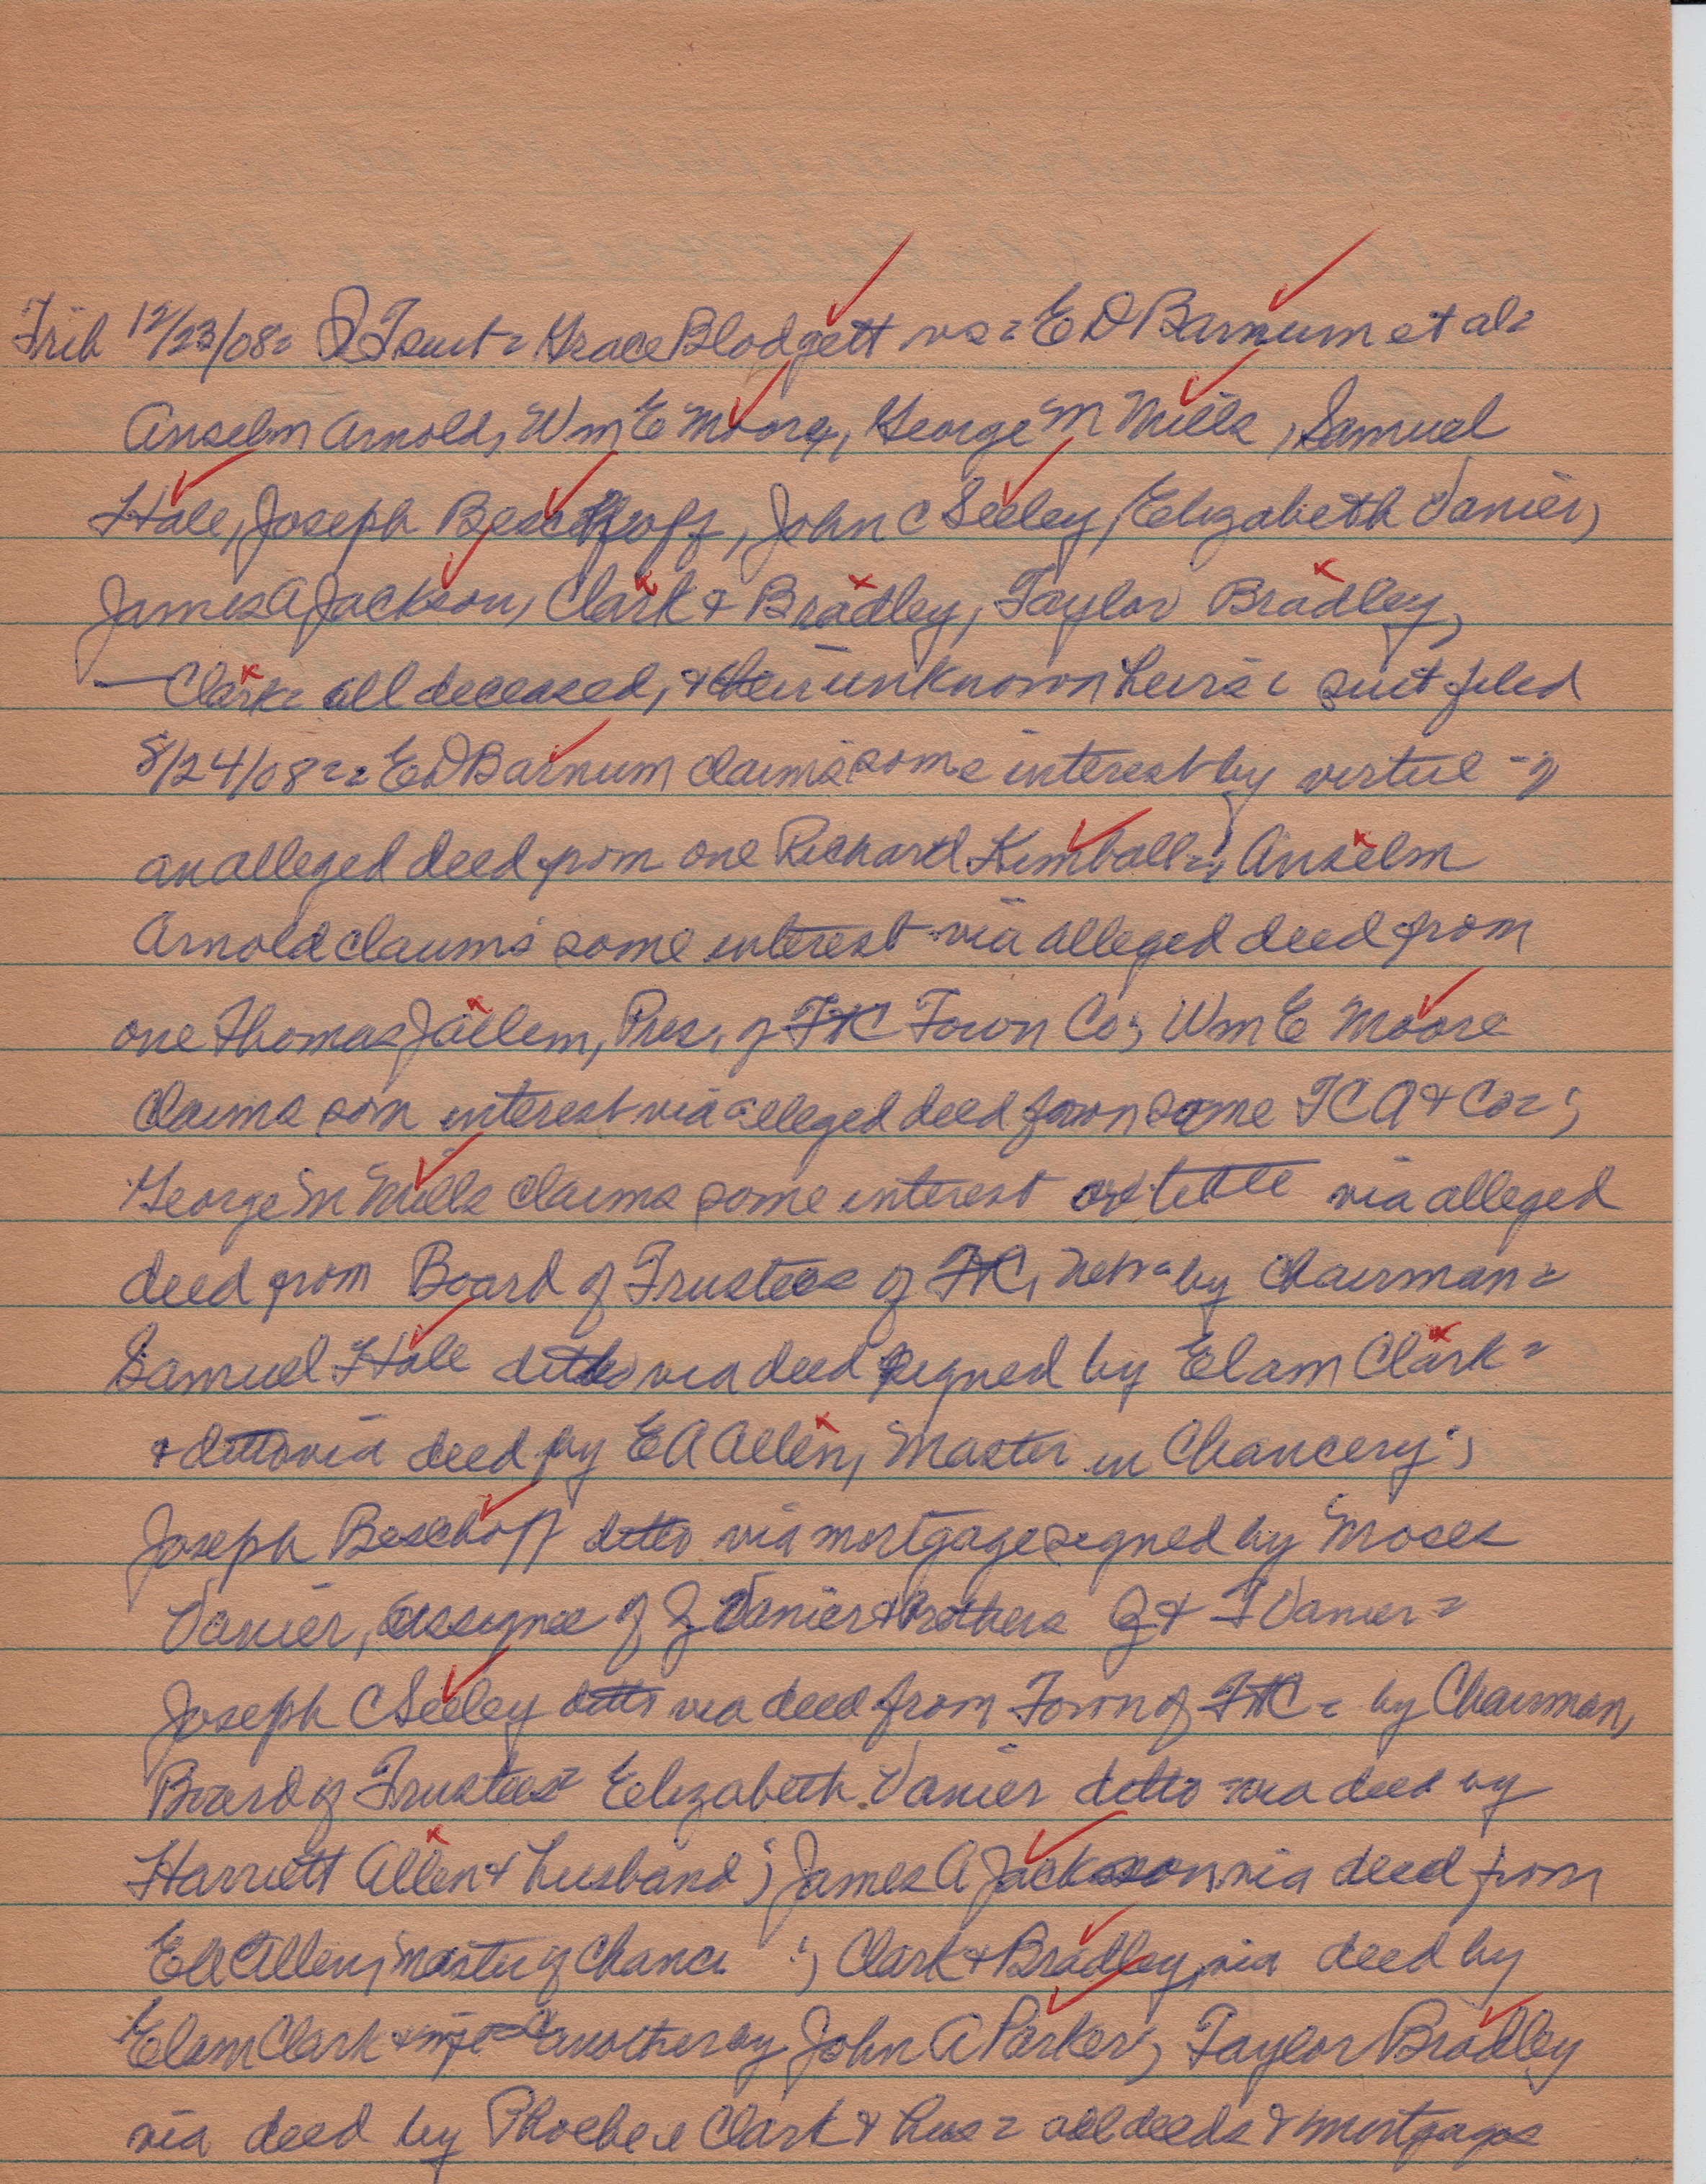 Trib 12/23/08= QTsuit= Grace Blodgett vs= E D Barnum et al=
Anselm Arnold, Wm E Moore, George M Mills, Samuel
Hale, Joseph Beschoff, John C Seeley, Elizabeth Vanier,
James A Jackson, Clark & Bradley, Taylor Bradley,
— Clark= all deceased, & their unknown heirs= suit filed
8/24/08== E D Barnum claims some interest by virtue of
an alleged deed from one Richard Kimball=; Anselm
Arnold claims some interest via alleged deed from
one Thomas, Pres. of FtC Town Co; Wm E Moore
claims som interest via alleged deed from some TCA & Co=;
George M Mills claims some interest or title via alleged
deed from Board of Trustees of FtC, Neb= by Chairman=
Samuel Hale ditto via deed signed by Elam Clark=
& ditto via deed by E A Allen, Master in Chancery;
Joseph Beschoff ditto via mortgage signed by Moses
Vanier, assignee of J Vanier & Brothers J & I Vanier=
Joseph C Seeley ditto via deed from Town of FtC= by Chairman,
Board of Trustees= Elizabeth Vanier ditto via deed by
Harriett Allen & husband; James A Jackson via deed from
EA Allen, master of Chanc; Clark & Bradley, via deed by
Elam Clark & wife & another by John A Parker; Taylor Bradley
via deed by Phoebe Clark & hus= all deeds & mortgages